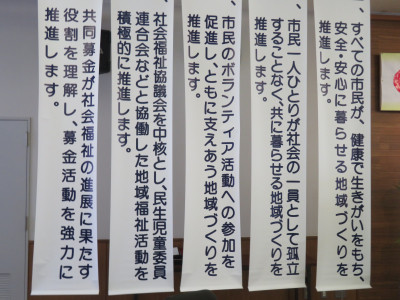 一、すべての市民が、健康で生きがいをもち、
安全・安心に暮らせる地域づくりを
推進します。
一、市民一人ひとりが社会の一員として孤立
することなく、共に暮らせる地域づくりを
推進します。
一、市民のボランティア活動への参加を
促進し、ともに支えあう地域づくりを
推進します。
一、社会福祉協議会を中核とし、民生児童委員
連合会などと協働した地域福祉活動を
積極的に推進します。
共同募金が社会福祉の進展に果たす
役割を理解し、募金活動を強力に
推進します。